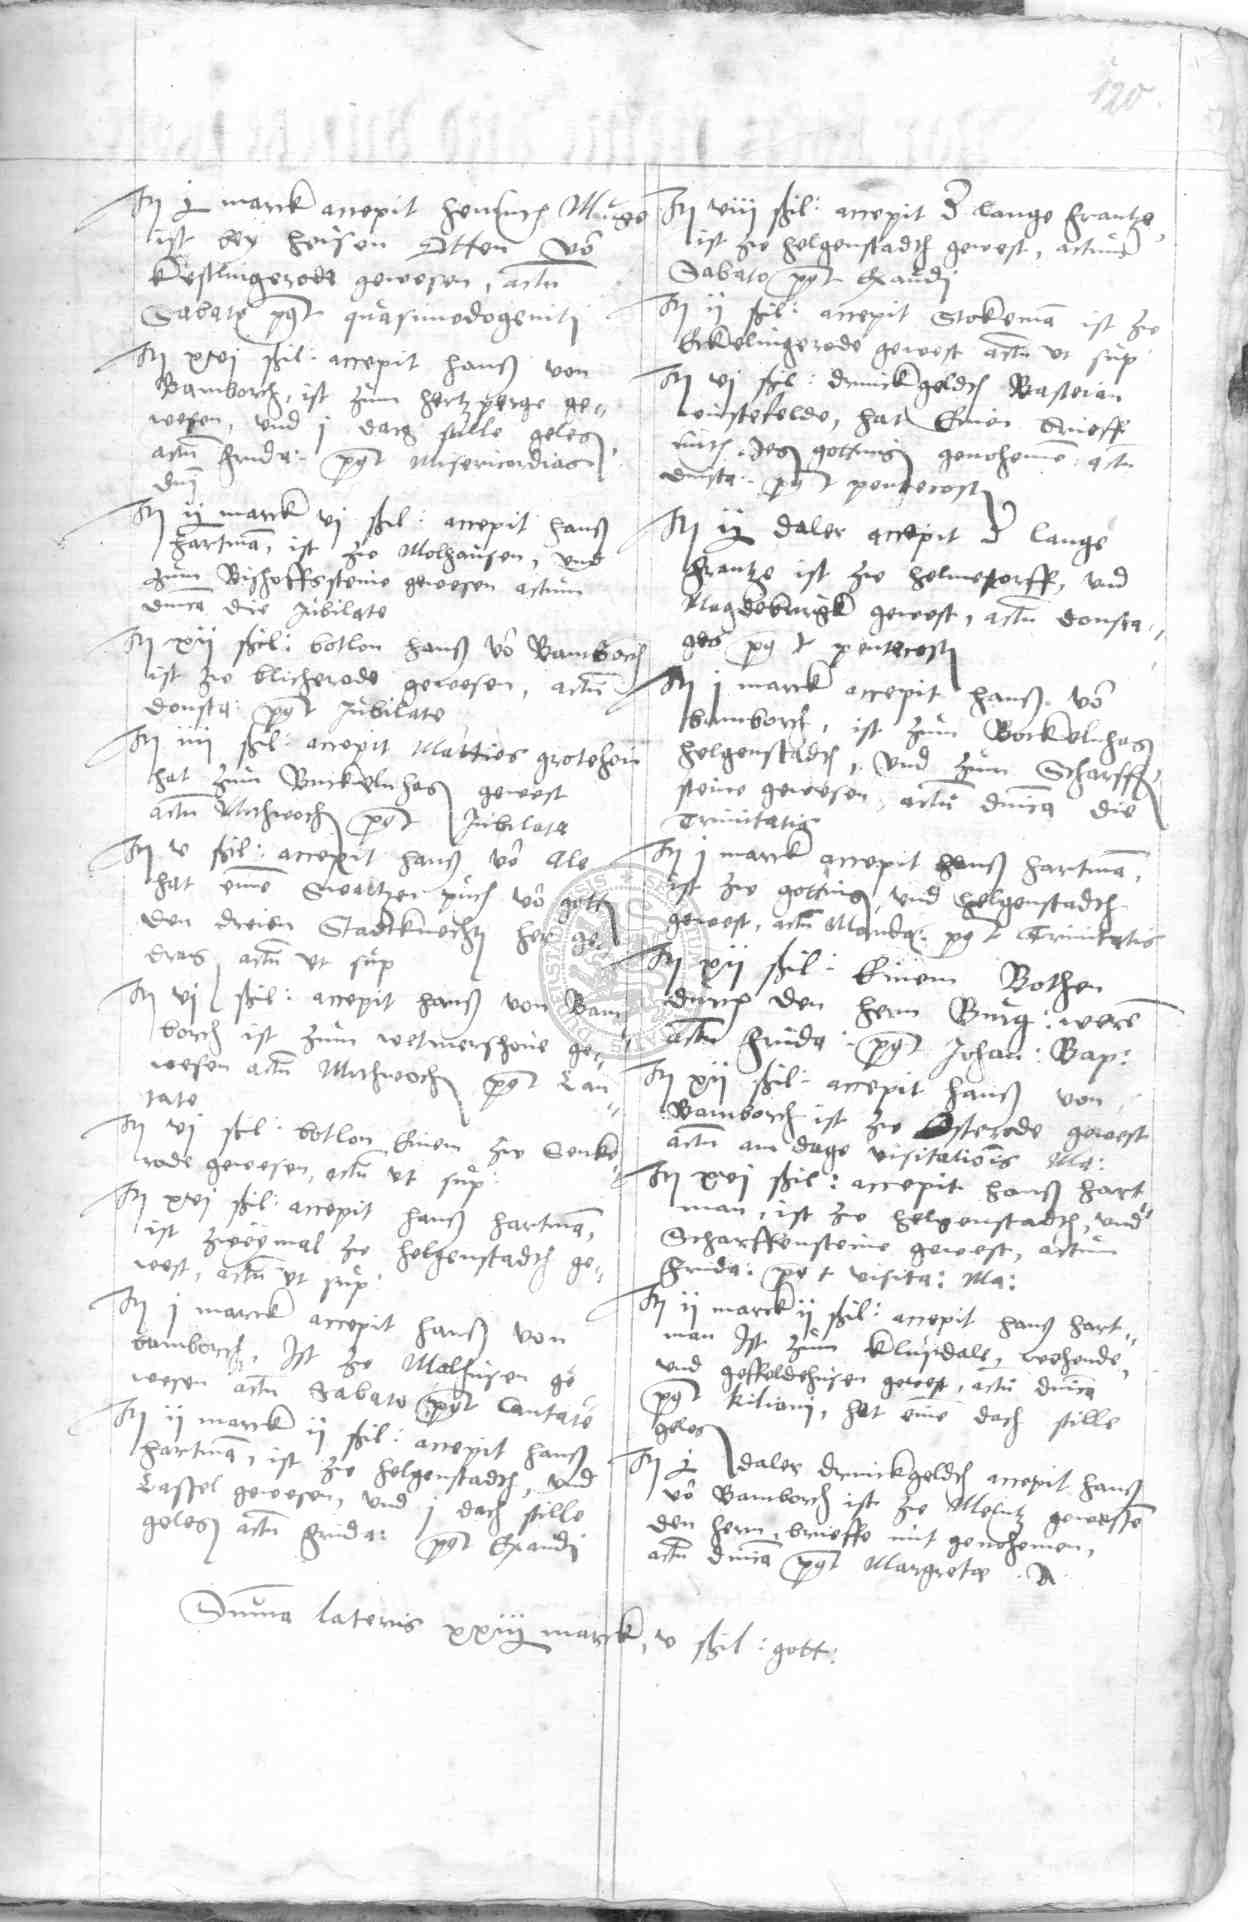 120
It j marck accepit henrich Munge
ist bey hensen Otten vō
kestlingerode gewesen, actū
Sabato pqt quasimodogeniti
It xvj ßil: accepit hanß von
Bamborch, ist zum hertzperge ge„
wesen, vnd j dach stille geleg
actū frida: pqt Misericordias
dnj
It ij marck vj ßil: accepit hanß
hartmā, ist zw Molhausen, vnd
zum Bishoffssteine gewesen actum
dnica die Jubilate
It xij ßil: botlon hanß vō Bamborch
ist zw blicherode gewesen, actū
donsta: pqt Jubilate
It iiij ßil: accepit Matties grotehen
hat zum Buckelnhag gewest
actū Mithwoch pqt Jubilate
It v ßil: accepit hanß vō Ale
hat einē Swartzen puch vō gott
den dreien Stadtknecht her ge„
drag actū vt sup
It vj ßil: accepit hanß von Bam„
borch ist zum welmershone ge„
wesen actū Mithwoch pqt Can„
tate
It vj ßil: botlon Einem zw Senke„
rode gewesen, actū vt sup:
It xvj ßil: accepit hanß hartmā,
ist zweymal zw helgenstadth ge„
west, actū vt sup:
It j marck accepit hanß von
bamborch, Ist zw Molhusen ge
wesen actū Sabato pqt Cantate
It ij marck ij ßil: accepit hanß
hartmā, ist zw helgenstadth, vnd
Cassel gewesen, vnd j dach stille
geleg actū frida: pqt Exaudi
It viij ßil: accepit d lange frantze,
ist zw helgenstadth gewest, actum
Sabato pqt Exaudi
It ij ßil: accepit Stokemā ist zw
Eckelingerode gewest actū vt sup
It vj ßil: drinckgeldth Basteian
winstefelde, hat Einen brieff
mith Jeg gotting genohemē: actū
dinsta: pqt pentecost
It ij daler accepit d lange
frantze ist zw helmestorff, vnd
Magdeburgk gewest, actū donsta„
ges pqt pentecost
It j marck accepit hanß vō
bamborch, ist zum Bockelnhag
helgenstadth, vnd zum Scharffen„
steine gewesen, actū dnica die
Trinitatis
It j marck accepit hanß hartmā,
ist zw gotting, vnd helgenstadth
gewest, actū Manda: pqt Trinitatis
It xij ßil: Einem Bothen
durch den hern Burg: werē
actū frida: pqt Johan: Bap:
It xij ßil: accepit hanß von
Bamborch ist zw Osterode gewest
actū am dage visitationis Ma:
It xvj ßil: accepit hanß hart
man, ist zw helgenstadth, vnd
Scharffensteine gewest, actum
frida: pqt visita: Ma:
It ij marck ij ßil: accepit hanß hart„
man Ist zum klusdale, wehende,
vnd geffeldehusen gewest, actū dnica
pqt kiliani, hat eine dach stille
geleg
It j daler drinckgeldth accepit hanß
vō Bamborch ist zw Mentz gewesen
den hern, brieffe mit genohemen,
actū dnica pqt Margrete
Suma lateris xxiij marck, v ßil: gott: